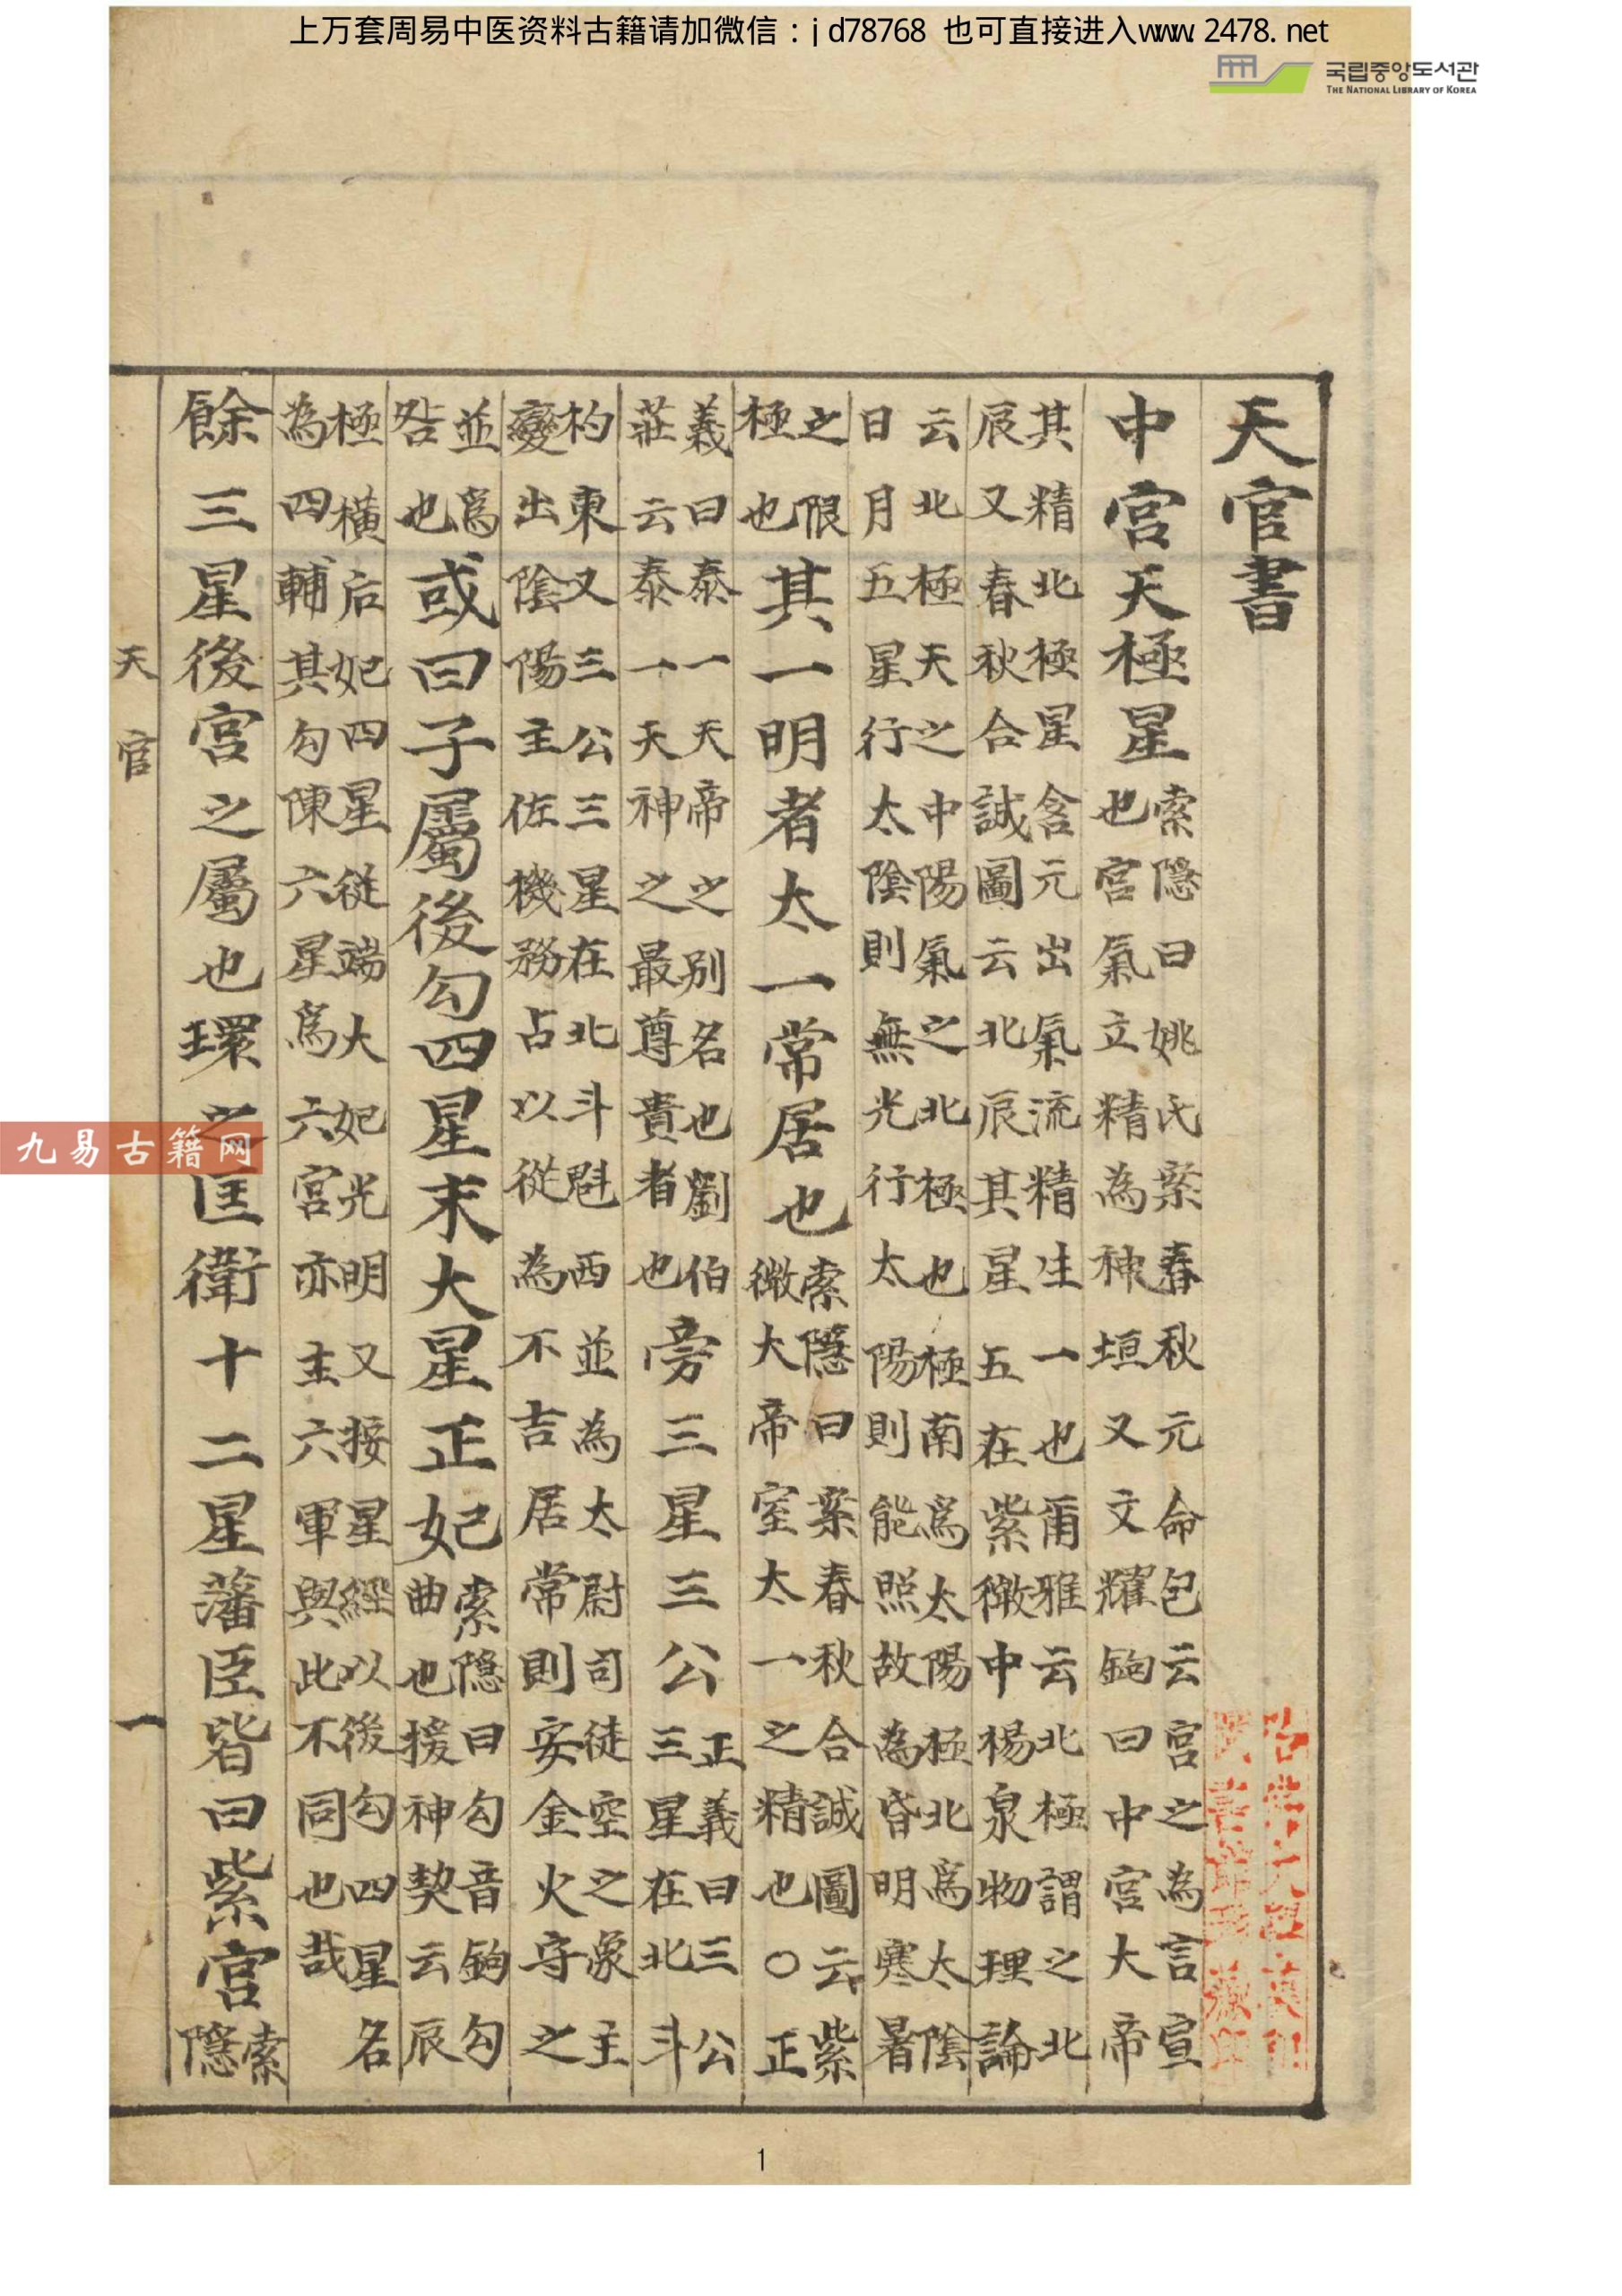 上万套周易中医资料古籍请加微信：jd78768 也可直接进入www.2478.net
국립중앙도서관
THE NATIONAL LIBRARY OF KOREA
天官書
中宮天極星
索隱曰姚氏案春秋元命包云宮之為言宣
也宮氣立精為神垣又文耀鉤曰中宮大帝
其精北極星含元出氣流精生一也爾雅云北極謂之北
辰又春秋合誠圖云北辰其星五在紫微中楊泉物理論
云北極天之中陽氣之北極也極南為太陽極北為太陰
日月五星行太陰則無光行太陽則能照故為昏明寒暑
之限
極也
其一明者太一常居也
索隱曰案春秋合誠圖云紫
微大帝室太一之精也○正
義曰泰一天帝之別名也劉伯
莊云泰一天神之最尊貴者也
旁三星三公
正義曰三公
三星在北斗
杓東又三公三星在北斗魁西並為太尉司徒空之象主
變出陰陽主佐機務占以從為不吉居常則安金火守之
並為
咎也
或曰子屬後勾四星末大星正妃
索隱曰勾音鉤勾
曲也援神契云辰
極橫后妃四星從端大妃光明又接星經以後勾四星名
為四輔其勾陳六星為六宮亦主六軍與此不同也哉
餘三星後宮之屬也環之匡衛十二星藩臣皆曰紫宮
索
隱
天官
一
九易古籍网
1